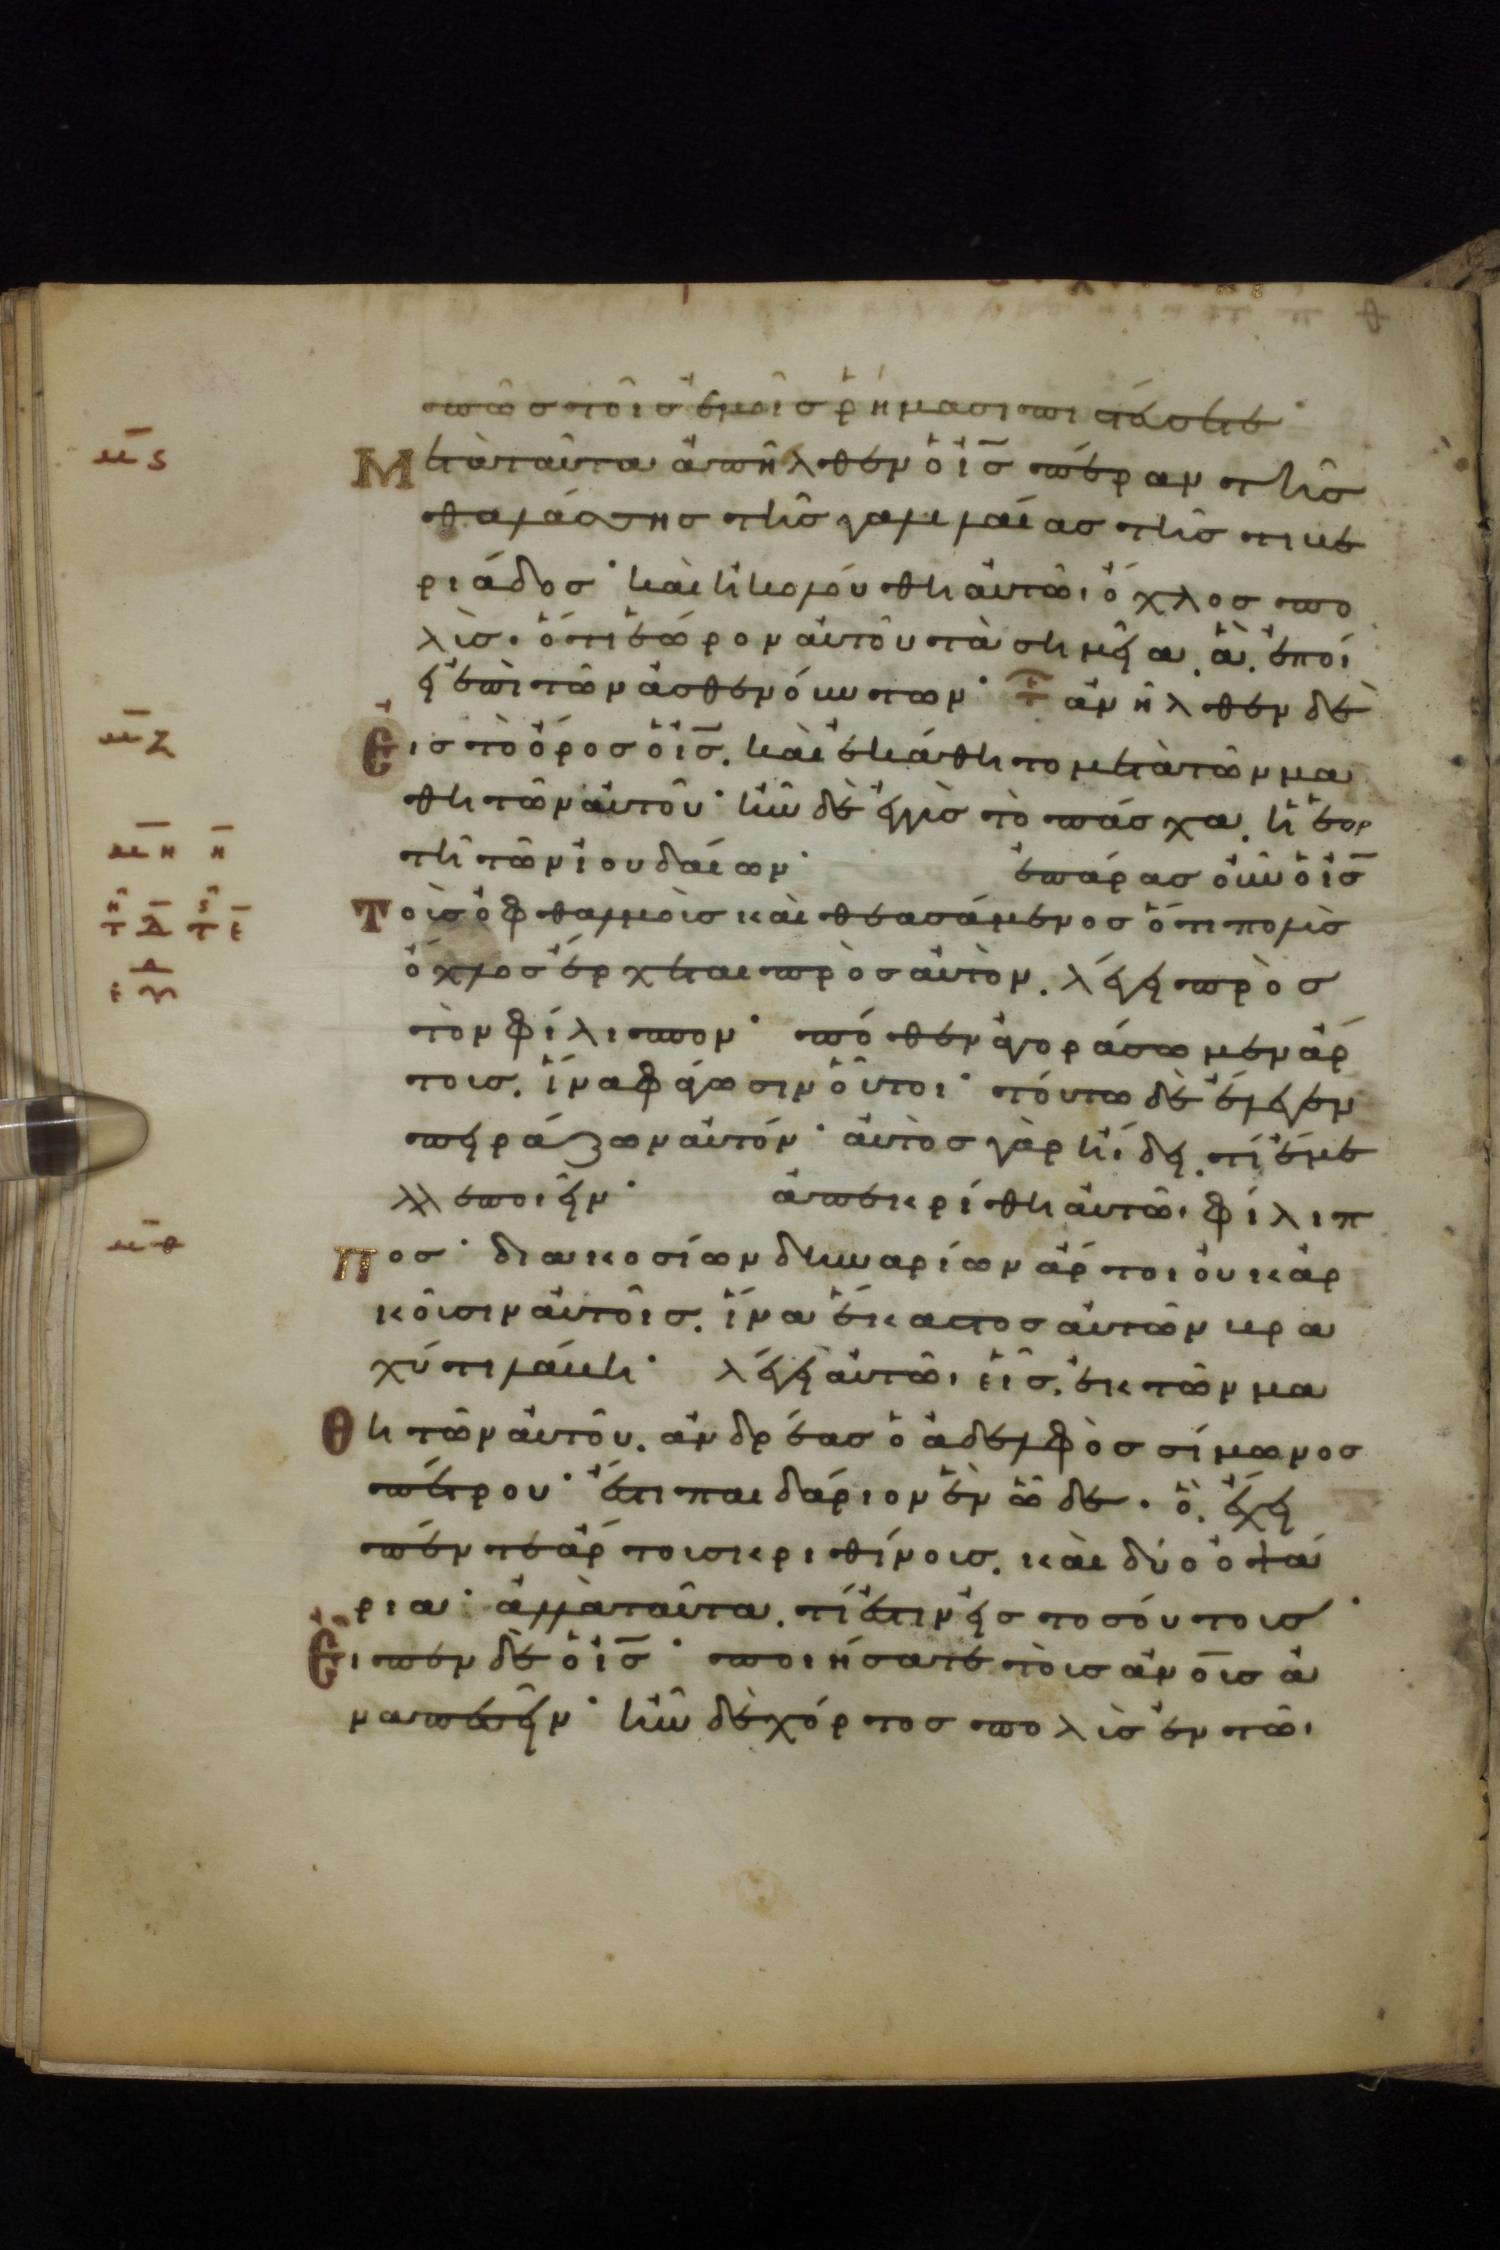 πῶς τοῖς ἐμοῖς ῥήμασι πιστεύσετε·
μς Μετὰ ταῦτα ἀπῆλθεν ὁ ἰς̅ πέραν τῆς
θαλάσσης τῆς γαλιλαίας τῆς τιβε
ριάδος· καὶ ἠκολούθη αὐτῶ· ὄχλος πο
λὺς. ὅτι ἑώρον αὐτοῦ τὰ σημεῖα. ἃ. ἐποί
ει ἐπὶ τῶν ἀσθενούντων· ἀνῆλθεν δὲ
μζ Εἰς τὸ ὄρος ὁ ἰς̅. καὶ ἐκάθητο μετὰ τῶν μα
θητῶν αὐτοῦ· ἦν δὲ ἐγγὺς τὸ πάσχα. ἡ ἑορ
μη η τὴ τῶν ἰουδαίων· ἐπάρας οὖν ὁ ἰς̅
Τοὺς ὀφθαλμοὺς καὶ θεασάμενος ὅτι πολὺς
ὄχλος ἔρχεται πρὸς αὐτὸν. λέγει πρὸς
τὸν φίλιππον· πόθεν ἀγοράσωμεν ἄρ
τους. ἵνα φάγωσιν οὗτοι· τοῦτο δὲ ἔλεγεν
πειράζων αὐτόν· αὐτὸς γὰρ ἤιδει. τί ἔμε
λλε ποιεῖν· ἀπεκρίθη αὐτῶ· φίλιπ
μθ πος· διακοσίων δηναρίων ἄρτοι οὐκ ἀρ
κοῦσιν αὐτοῖς. ἵνα ἕκαστος αὐτῶν βρα
χύ τι λάβη· λέγει αὐτῶ· εἷς. ἐκ τῶν μα
θητῶν αὐτοῦ. ἀνδρέας ὁ ἀδελφὸς σίμωνος
πέτρου· ἔστι παιδάριον ἓν ὧδε. ὃ. ἔχει
πέντε ἄρτους κριθίνους. καὶ δύο ὀψά
ρια· ἀλλὰ ταῦτα. τί ἐστιν εἰς τοσούτους·
Εἶπεν δὲ ὁ ἰς̅· ποιήσατε τοὺς ἀν̅ους ἀ
ναπεσεῖν· ἦν δὲ χόρτος πολὺς ἐν τῶ·